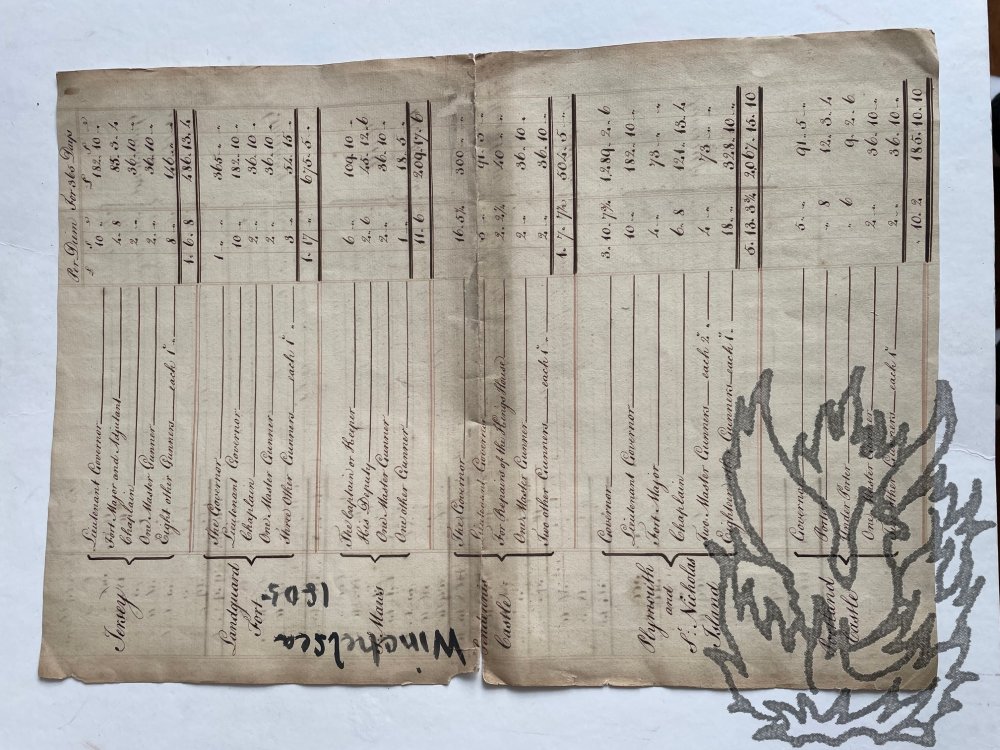 Per Diem For 365 Days
£ £
Jersey
Lieutenant Governor 10 " " 182. 10. "
Fort Major and Adjutant 4. 8 83. 3. 4
Chaplain 2. " 36. 10. "
One Master Gunner 2. " 36. 10. "
Eight other Gunners each 1s " 8 " 146. " "
1. 6. 8 486. 13. 4
Landguard Fort
The Governor 1 " " 365. " "
Lieutenant Governor 10 " 182. 10 "
Chaplain 2 " 36. 10 "
One Master Gunner 2 " 36. 10 "
Three Other Gunners each 1s " 3 " 54. 15 "
1. 17 " 675. 5. "
St Maws
The Captain or Keeper 6 " 109. 10 "
His Deputy 2. 6 45. 12. 6
One Master Gunner 2 " 36. 10 "
One other Gunner 1 " 18. 5 "
11. 6 209. 17. 6
Castle
The Governor 16. 5¼ 300 " "
Lieutenant Governor 5 " 91. 5 "
For Repairs of the Kings House 2. 2¼ 40 " "
One Master Gunner 2 " 36. 10 "
Two other Gunners each 1s " 2 " 36. 10 "
1. 7. 7½ 504. 5. "
Plymouth and St. Nicholas Island
Governor 3. 10. 7¾ 1,289. 2. 6
Lieutenant Governor 10 " 182. 10 "
Fort Major 4 " 73 " "
Chaplain 6. 8 121. 13. 4
Two Master Gunners each 2s " 4 " 73 " "
Eighteen Gunners each 1s " 18 " 328. 10 "
5. 13. 3¾ 2,067. 15. 10
Portland Castle
Governor 5 " 91. 5 "
" 8 12. 3. 4
Under Porter " 6 9. 2. 6
One Master 2 " 36. 10 "
other Gunners each 1s 2 " 36. 10 "
" 10. 2 185. 10. 10
Winchelsea
1805